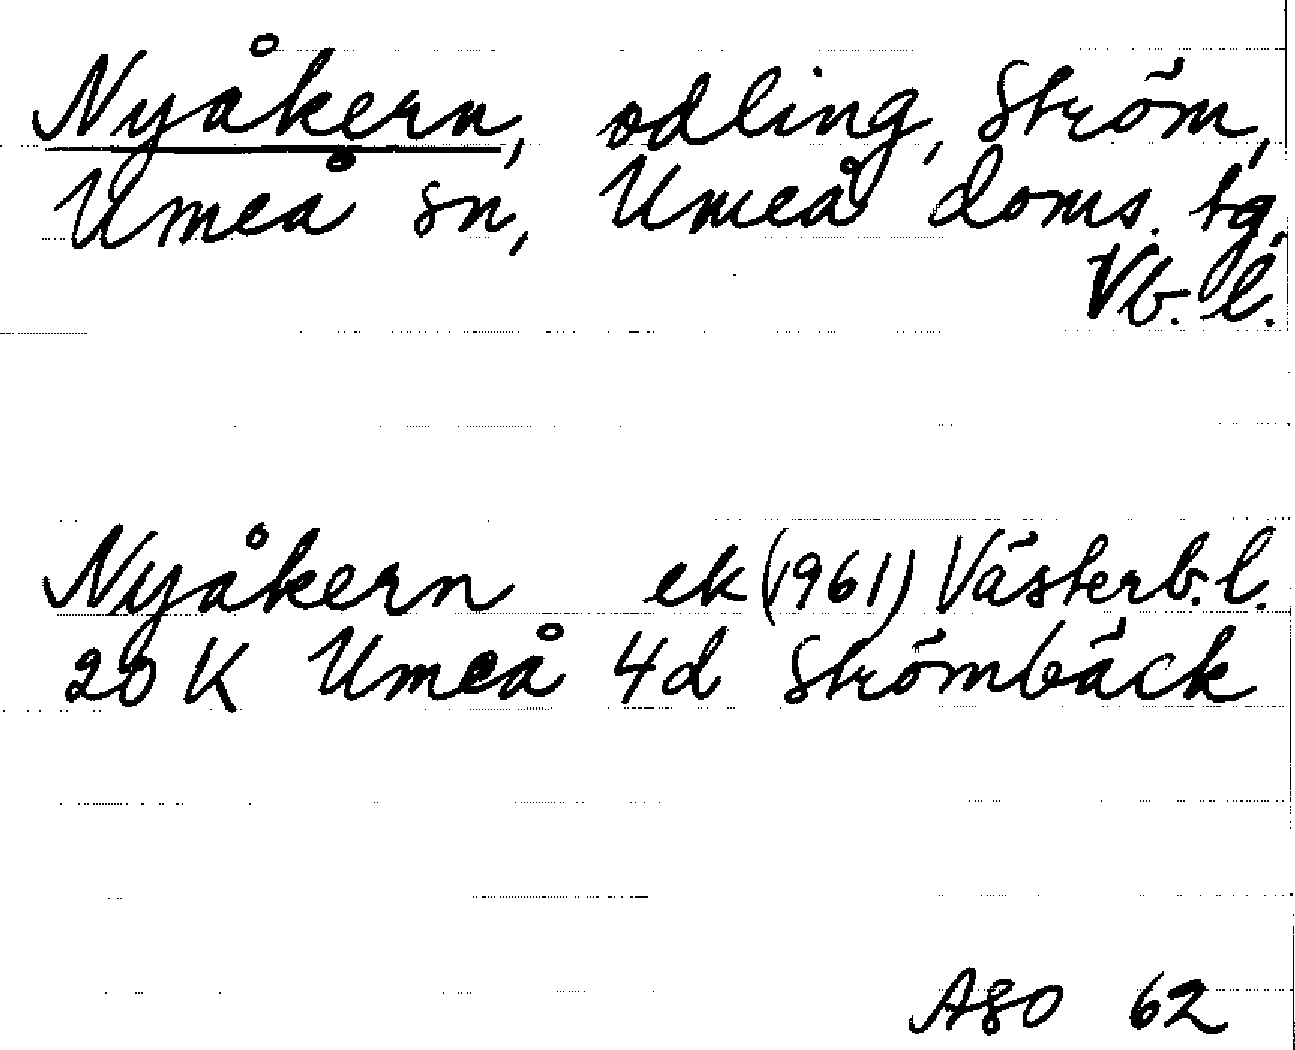 Nyåkern, odling, Ström,
Umeå sn, Umeå doms. tg,
Vb. l.
Nyåkern ek (1961) Västerb. l.
20 K Umeå 4d Strömbäck
ASO 62